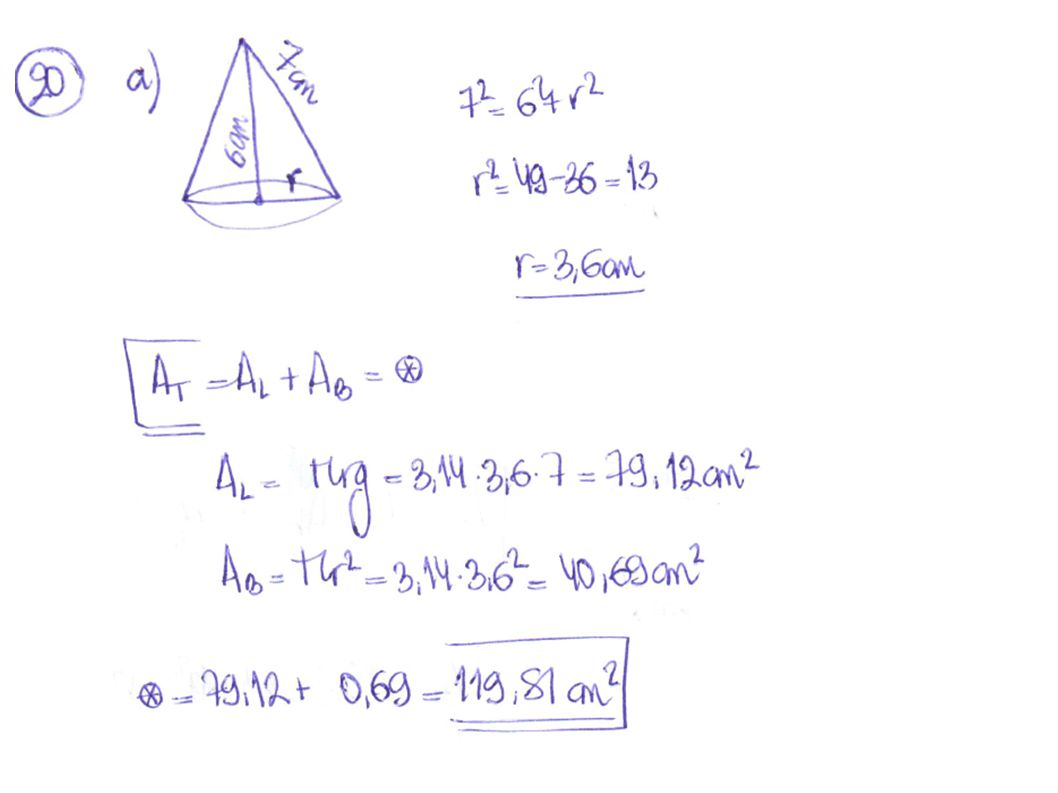 20 a)
7cm
6cm
r
7² = 6² + r²
r² = 49 - 36 = 13
r = 3,6cm
A_T = A_L + A_B = ⊛
A_L = πrg = 3,14 · 3,6 · 7 = 79,12cm²
A_B = πr² = 3,14 · 3,6² = 40,69cm²
⊛ = 79,12 + 0,69 = 119,81 cm²